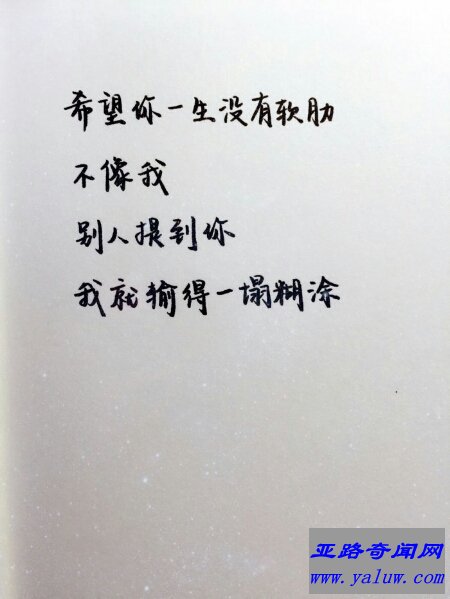 希望你一生没有软肋
不像我
别人提到你
我就输得一塌糊涂
亚路奇闻网
www.yaluw.com